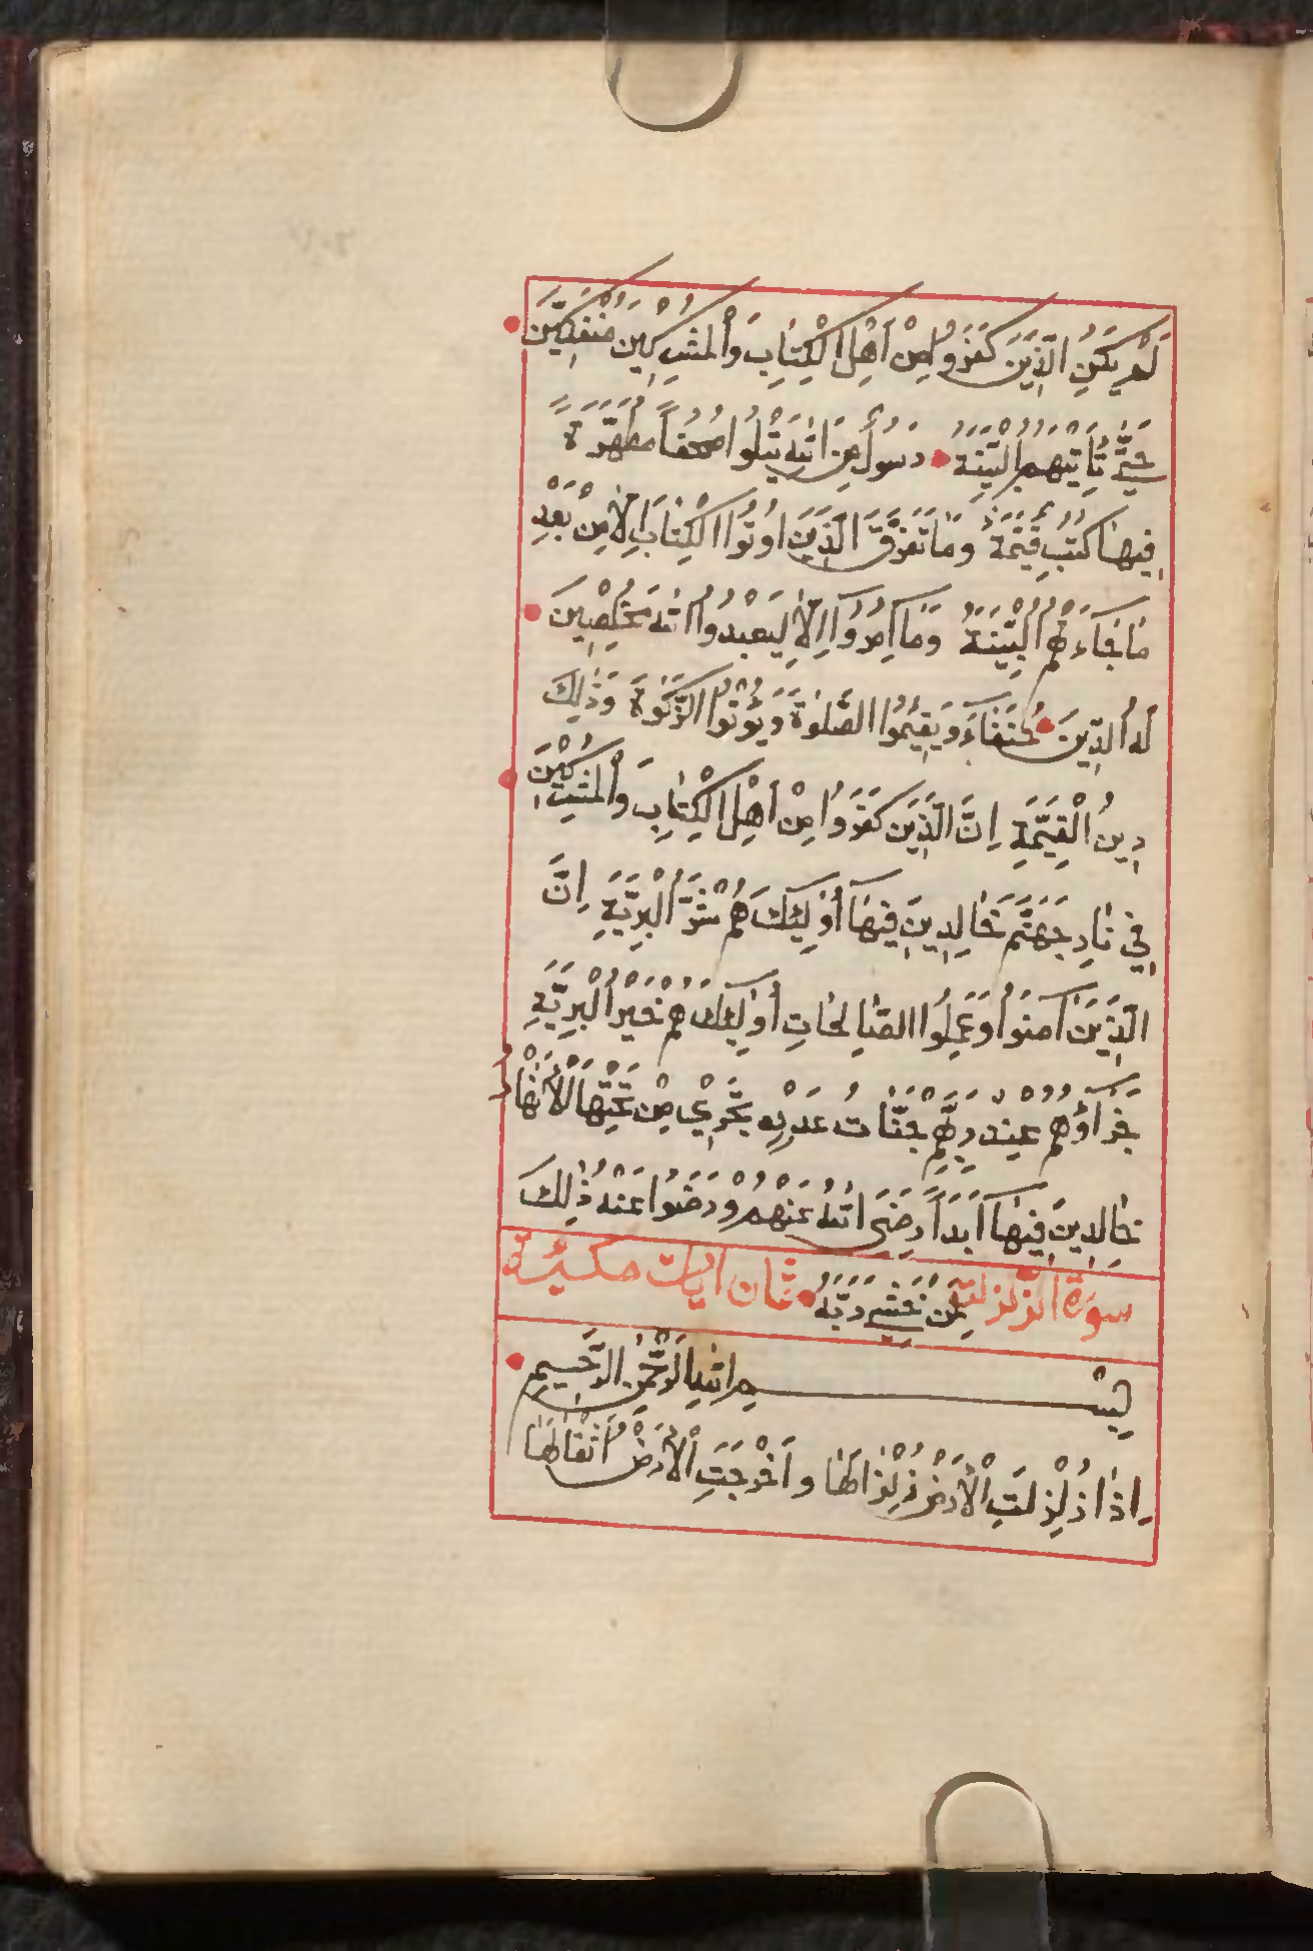 لَمْ يَكُنِ الَّذِينَ كَفَرُوا مِنْ أَهْلِ الْكِتَابِ وَالْمُشْرِكِينَ مُنْفَكِّينَ
حَتَّى تَأْتِيَهُمُ الْبَيِّنَةُ رَسُولٌ مِنَ اللهِ يَتْلُوا صُحُفًا مُطَهَّرَةً
فِيهَا كُتُبٌ قَيِّمَةٌ وَمَا تَفَرَّقَ الَّذِينَ أُوتُوا الْكِتَابَ إِلَّا مِنْ بَعْدِ
مَا جَاءَتْهُمُ الْبَيِّنَةُ وَمَا أُمِرُوا إِلَّا لِيَعْبُدُوا اللهَ مُخْلِصِينَ
لَهُ الدِّينَ حُنَفَاءَ وَيُقِيمُوا الصَّلٰوةَ وَيُؤْتُوا الزَّكٰوةَ وَذٰلِكَ
دِينُ الْقَيِّمَةِ إِنَّ الَّذِينَ كَفَرُوا مِنْ أَهْلِ الْكِتَابِ وَالْمُشْرِكِينَ
فِي نَارِ جَهَنَّمَ خَالِدِينَ فِيهَا أُولَئِكَ هُمْ شَرُّ الْبَرِيَّةِ إِنَّ
الَّذِينَ آمَنُوا وَعَمِلُوا الصَّالِحَاتِ أُولَئِكَ هُمْ خَيْرُ الْبَرِيَّةِ
جَزَآؤُهُمْ عِنْدَ رَبِّهِمْ جَنَّاتُ عَدْنٍ تَجْرِي مِنْ تَحْتِهَا الْأَنْهَارُ
خَالِدِينَ فِيهَا أَبَدًا رَضِيَ اللهُ عَنْهُمْ وَرَضُوا عَنْهُ ذٰلِكَ
لِمَنْ خَشِيَ رَبَّهُ
سورة الزلزلة ثمان ايات مكية
بِسْمِ اللهِ الرَّحْمٰنِ الرَّحِيمِ
إِذَا زُلْزِلَتِ الْأَرْضُ زِلْزَالَهَا وَأَخْرَجَتِ الْأَرْضُ أَثْقَالَهَا